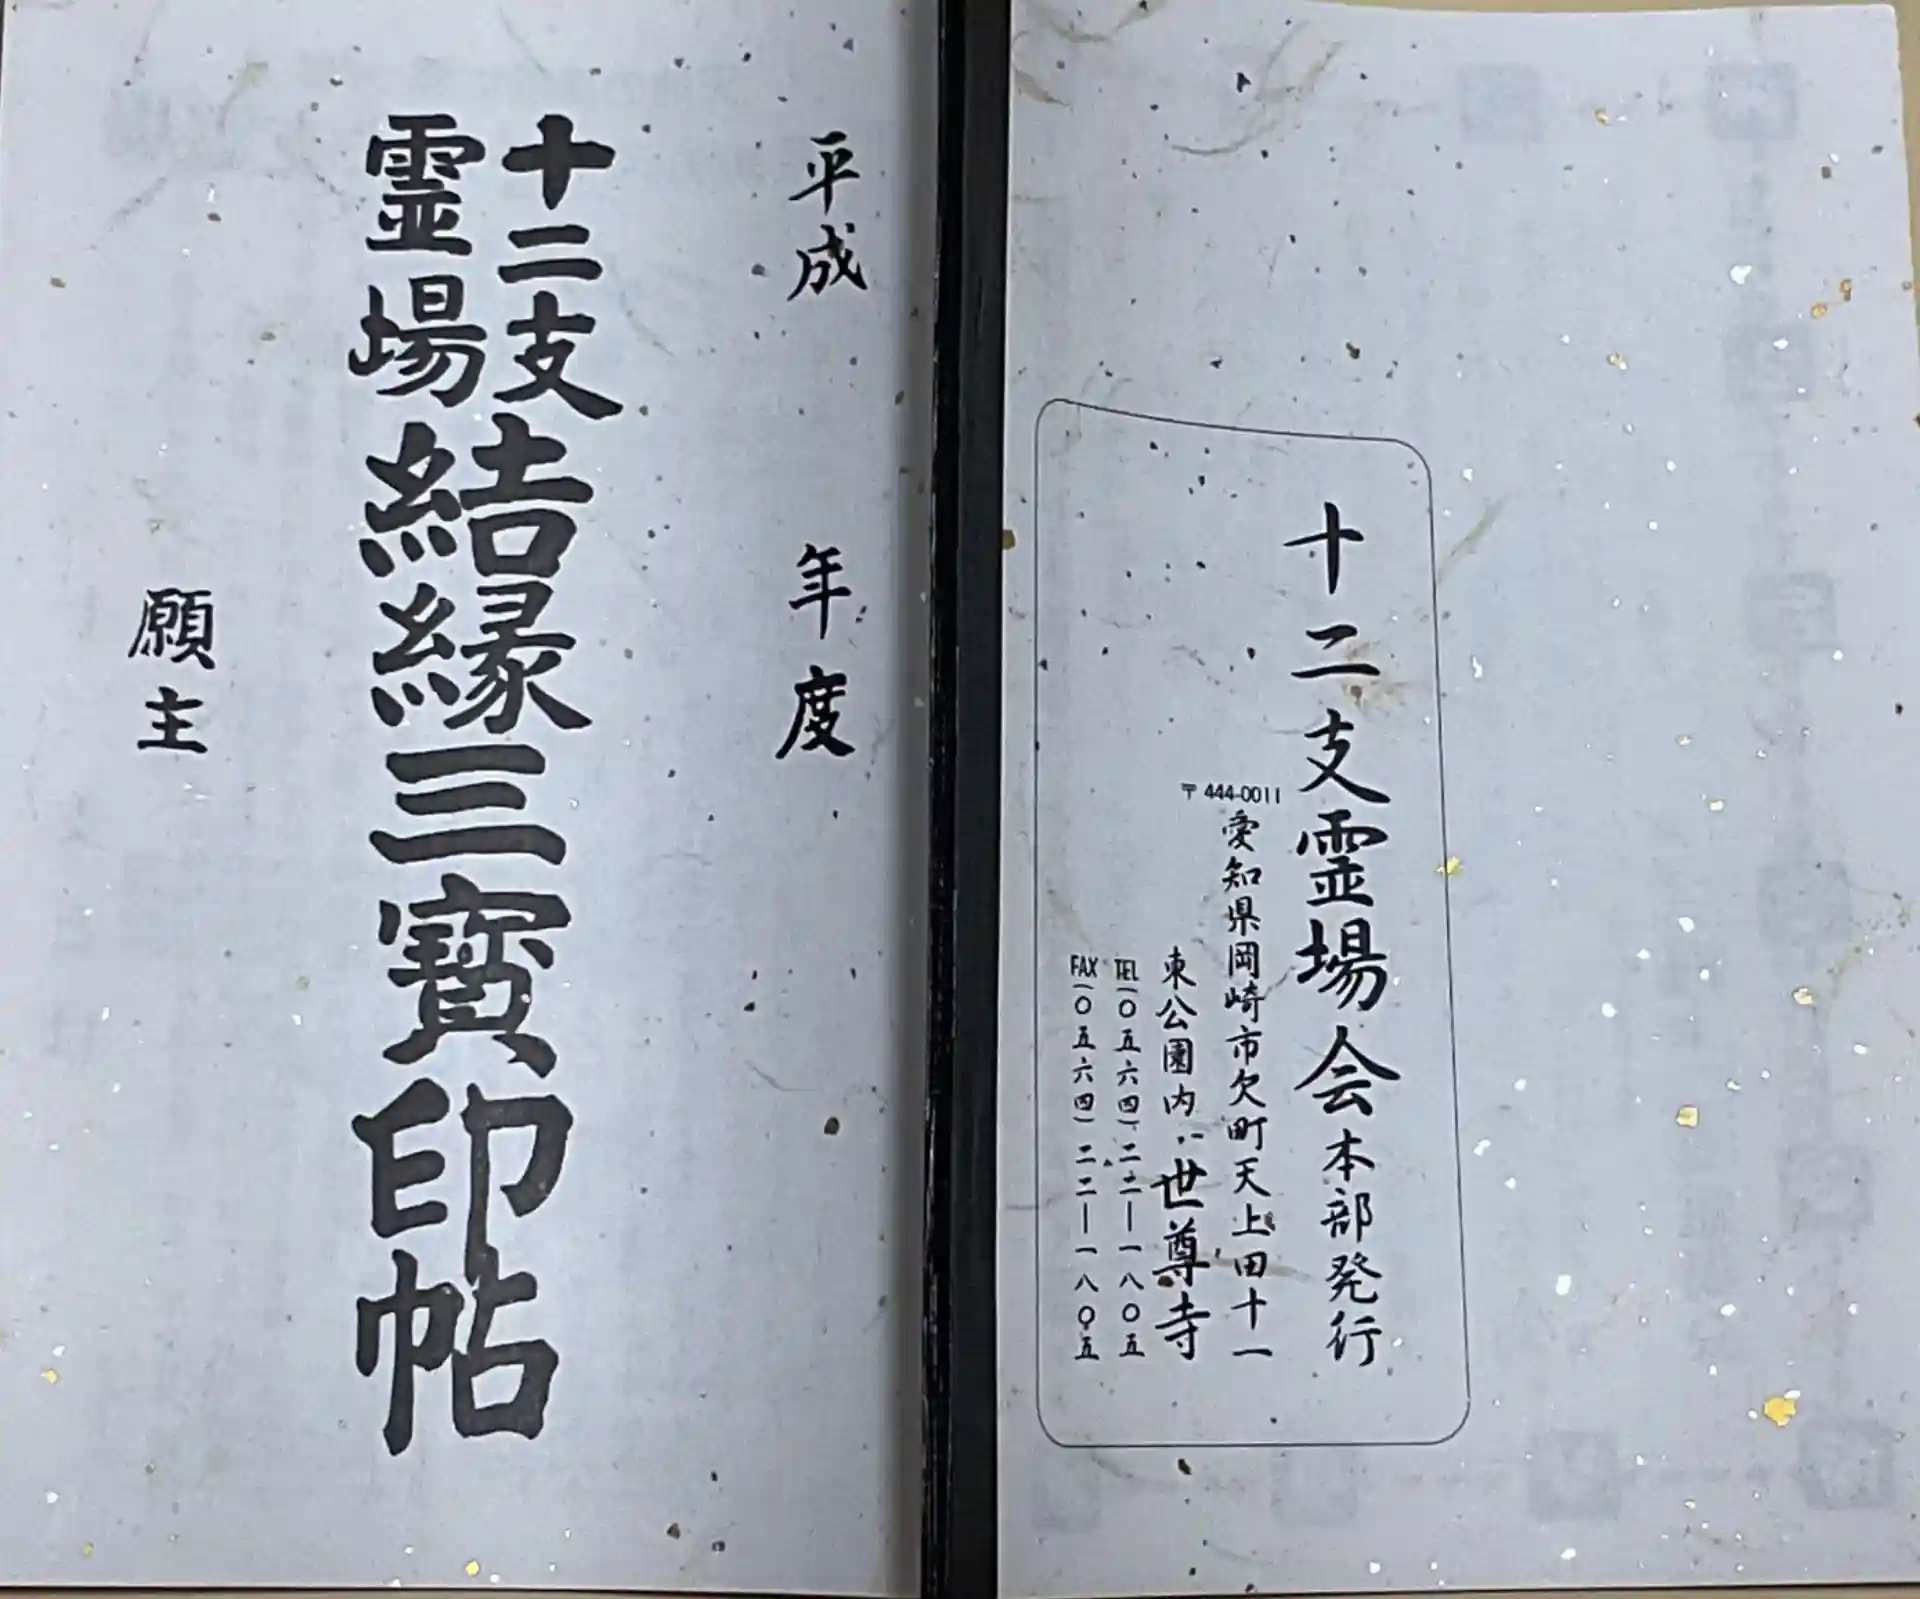 十二支霊場会本部発行
〒444-0011
愛知県岡崎市欠町天上田十一
東公園内 世尊寺
TEL(〇五六四)二二―一八〇五
FAX(〇五六四)二二―一八〇五
平成 年度
十二支
霊場
結縁三寳印帖
願主